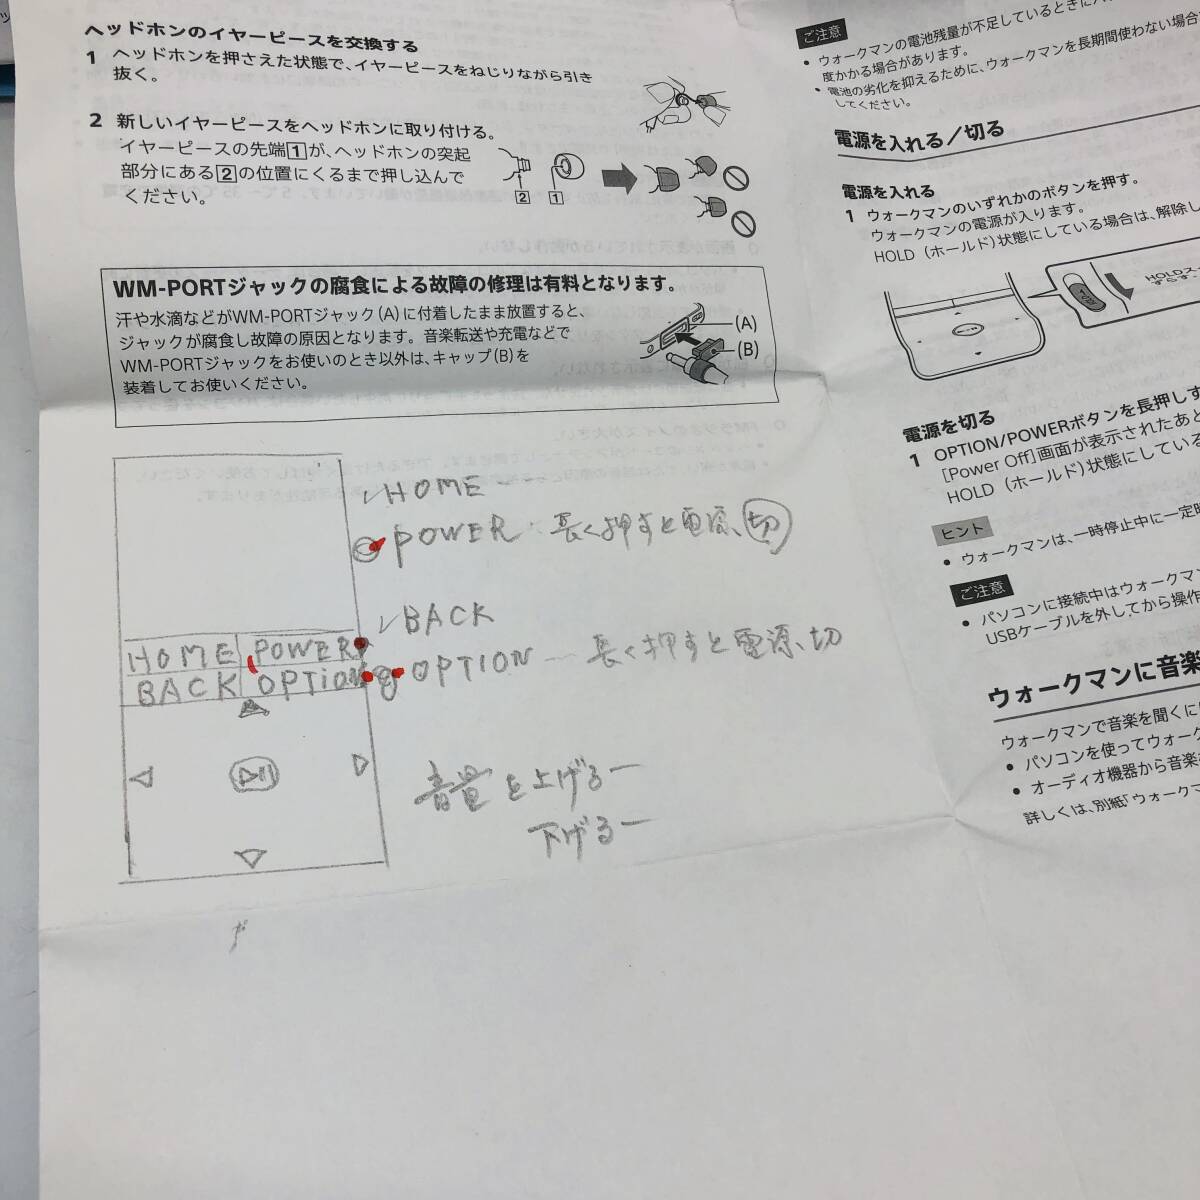 ヘッドホンのイヤーピースを交換する
1 ヘッドホンを押さえた状態で、イヤーピースをねじりながら引き
抜く。
2 新しいイヤーピースをヘッドホンに取り付ける。
イヤーピースの先端1が、ヘッドホンの突起
部分にある2の位置にくるまで押し込んで
ください。
2 1
WM-PORTジャックの腐食による故障の修理は有料となります。
汗や水滴などがWM-PORTジャック(A)に付着したまま放置すると、
ジャックが腐食し故障の原因となります。音楽転送や充電などで
WM-PORTジャックをお使いのとき以外は、キャップ(B)を
装着してお使いください。
(A)
(B)
HOME
POWER 長く押すと電源、切
BACK
OPTION 長く押すと電源、切
HOME POWER
BACK OPTION
音量を上げる
下げる
ご注意
• ウォークマンの電池残量が不足しているときに
度かかる場合があります。
• 電池の劣化を抑えるために、ウォークマンを長期間使わない場合
してください。
電源を入れる／切る
電源を入れる
1 ウォークマンのいずれかのボタンを押す。
ウォークマンの電源が入ります。
HOLD（ホールド）状態にしている場合は、解除し
HOLDス
電源を切る
1 OPTION/POWERボタンを長押しす
[Power Off]画面が表示されたあと
HOLD（ホールド）状態にしている
ヒント
• ウォークマンは、一時停止中に一定時
ご注意
• パソコンに接続中はウォークマン
USBケーブルを外してから操作
ウォークマンに音楽
ウォークマンで音楽を聞くには
• パソコンを使ってウォーク
• オーディオ機器から音楽
詳しくは、別紙「ウォークマ